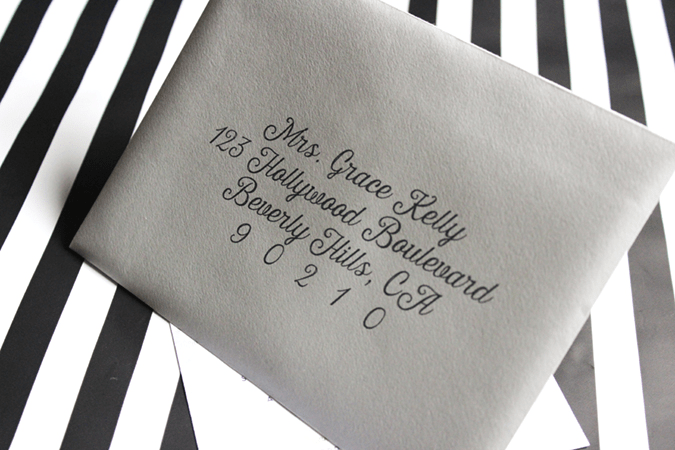 Mrs. Grace Kelly
123 Hollywood Boulevard
Beverly Hills, CA
9 0 2 1 0